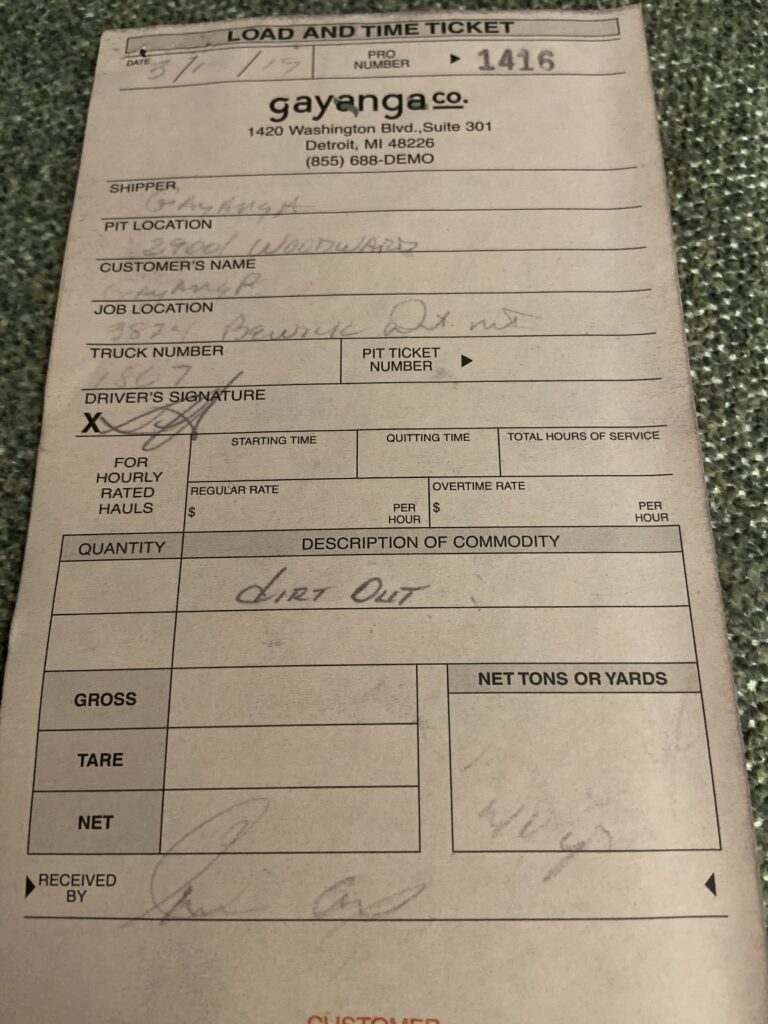 LOAD AND TIME TICKET
DATE 3/1 /19
PRO NUMBER ▶ 1416
gayanga co.
1420 Washington Blvd., Suite 301
Detroit, MI 48226
(855) 688-DEMO
SHIPPER
GAYANGA
PIT LOCATION
WOODWARD
CUSTOMER'S NAME
GAYANGA
JOB LOCATION
Bewick Det. mi
TRUCK NUMBER
PIT TICKET NUMBER ▶
DRIVER'S SIGNATURE
X
FOR HOURLY RATED HAULS
STARTING TIME
QUITTING TIME
TOTAL HOURS OF SERVICE
REGULAR RATE
$ PER HOUR
OVERTIME RATE
$ PER HOUR
QUANTITY
DESCRIPTION OF COMMODITY
DIRT OUT
GROSS
TARE
NET
NET TONS OR YARDS
yr
RECEIVED BY
CUSTOMER